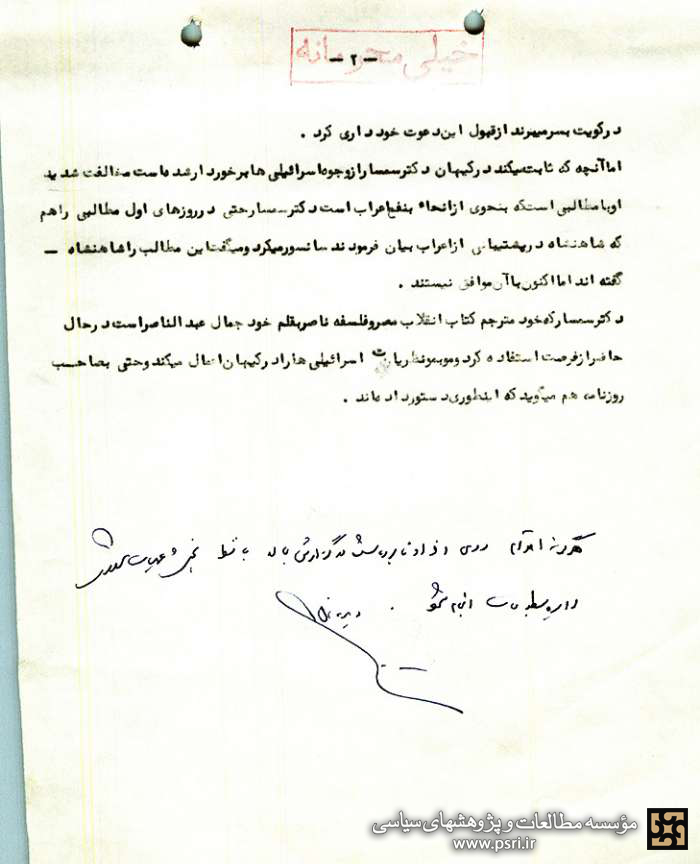 خیلی محرمانه
-۲-
در کویت بسر میبرند از قبول این دعوت خود داری کرد .
اما آنچه که ثابت میکند در کیهان دکتر سمسار از وجوه اسرائیلی ها برخوردار شده است مخالفت شدید
او با مطالبی است که بنحوی از انحاء بنفع اعراب است دکتر سمسار حتی در روزهای اول مطالبی را هم
که شاهنشاه در پشتیبانی از اعراب بیان فرمودند سانسور میکرد و میگفت این مطالب را شاهنشاه -
گفته اند اما اکنون با آن موافق نیستند .
دکتر سمسار که خود مترجم کتاب انقلاب مصر و فلسفه ناصر بقلم خود جمال عبدالناصر است در حال
حاضر از فرصت استفاده کرده و موبمو نظریات اسرائیلی ها را در کیهان اعمال میکند و حتی بصاحب
روزنامه هم میگوید که اینطوری دستور داده اند .
هرگونه اقدام روی افراد نامبرده در گزارش بالا فقط
انجام شود .
مؤسسه مطالعات و پژوهشهای سیاسی
www.psri.ir